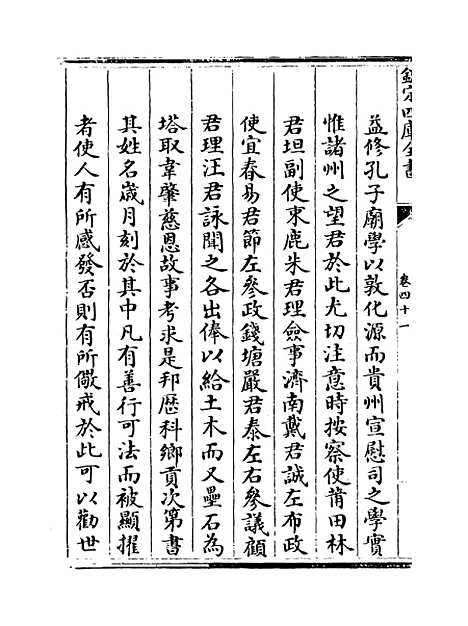 欽定四庫全書
卷四十一
益修孔子廟學以敦化源而貴州宣慰司之學實
惟諸州之望君於此尤切注意時按察使莆田林
君坦副使束鹿朱君理僉事濟南戴君誠左布政
使宜春易君節左參政錢塘嚴君泰左右參議顧
君理汪君詠聞之各出俸以給土木而又壘石為
塔取韋肇慈恩故事考求是邦歷科鄉貢次第書
其姓名歲月刻於其中凡有善行可法而被顯擢
者使人有所感發否則有所儆戒於此可以勸世